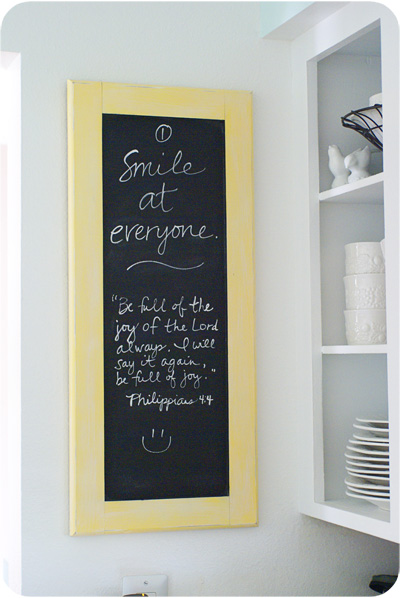 1
Smile
at
everyone.
"Be full of the
joy of the Lord
always. I will
say it again,
be full of joy."
Philippians 4:4